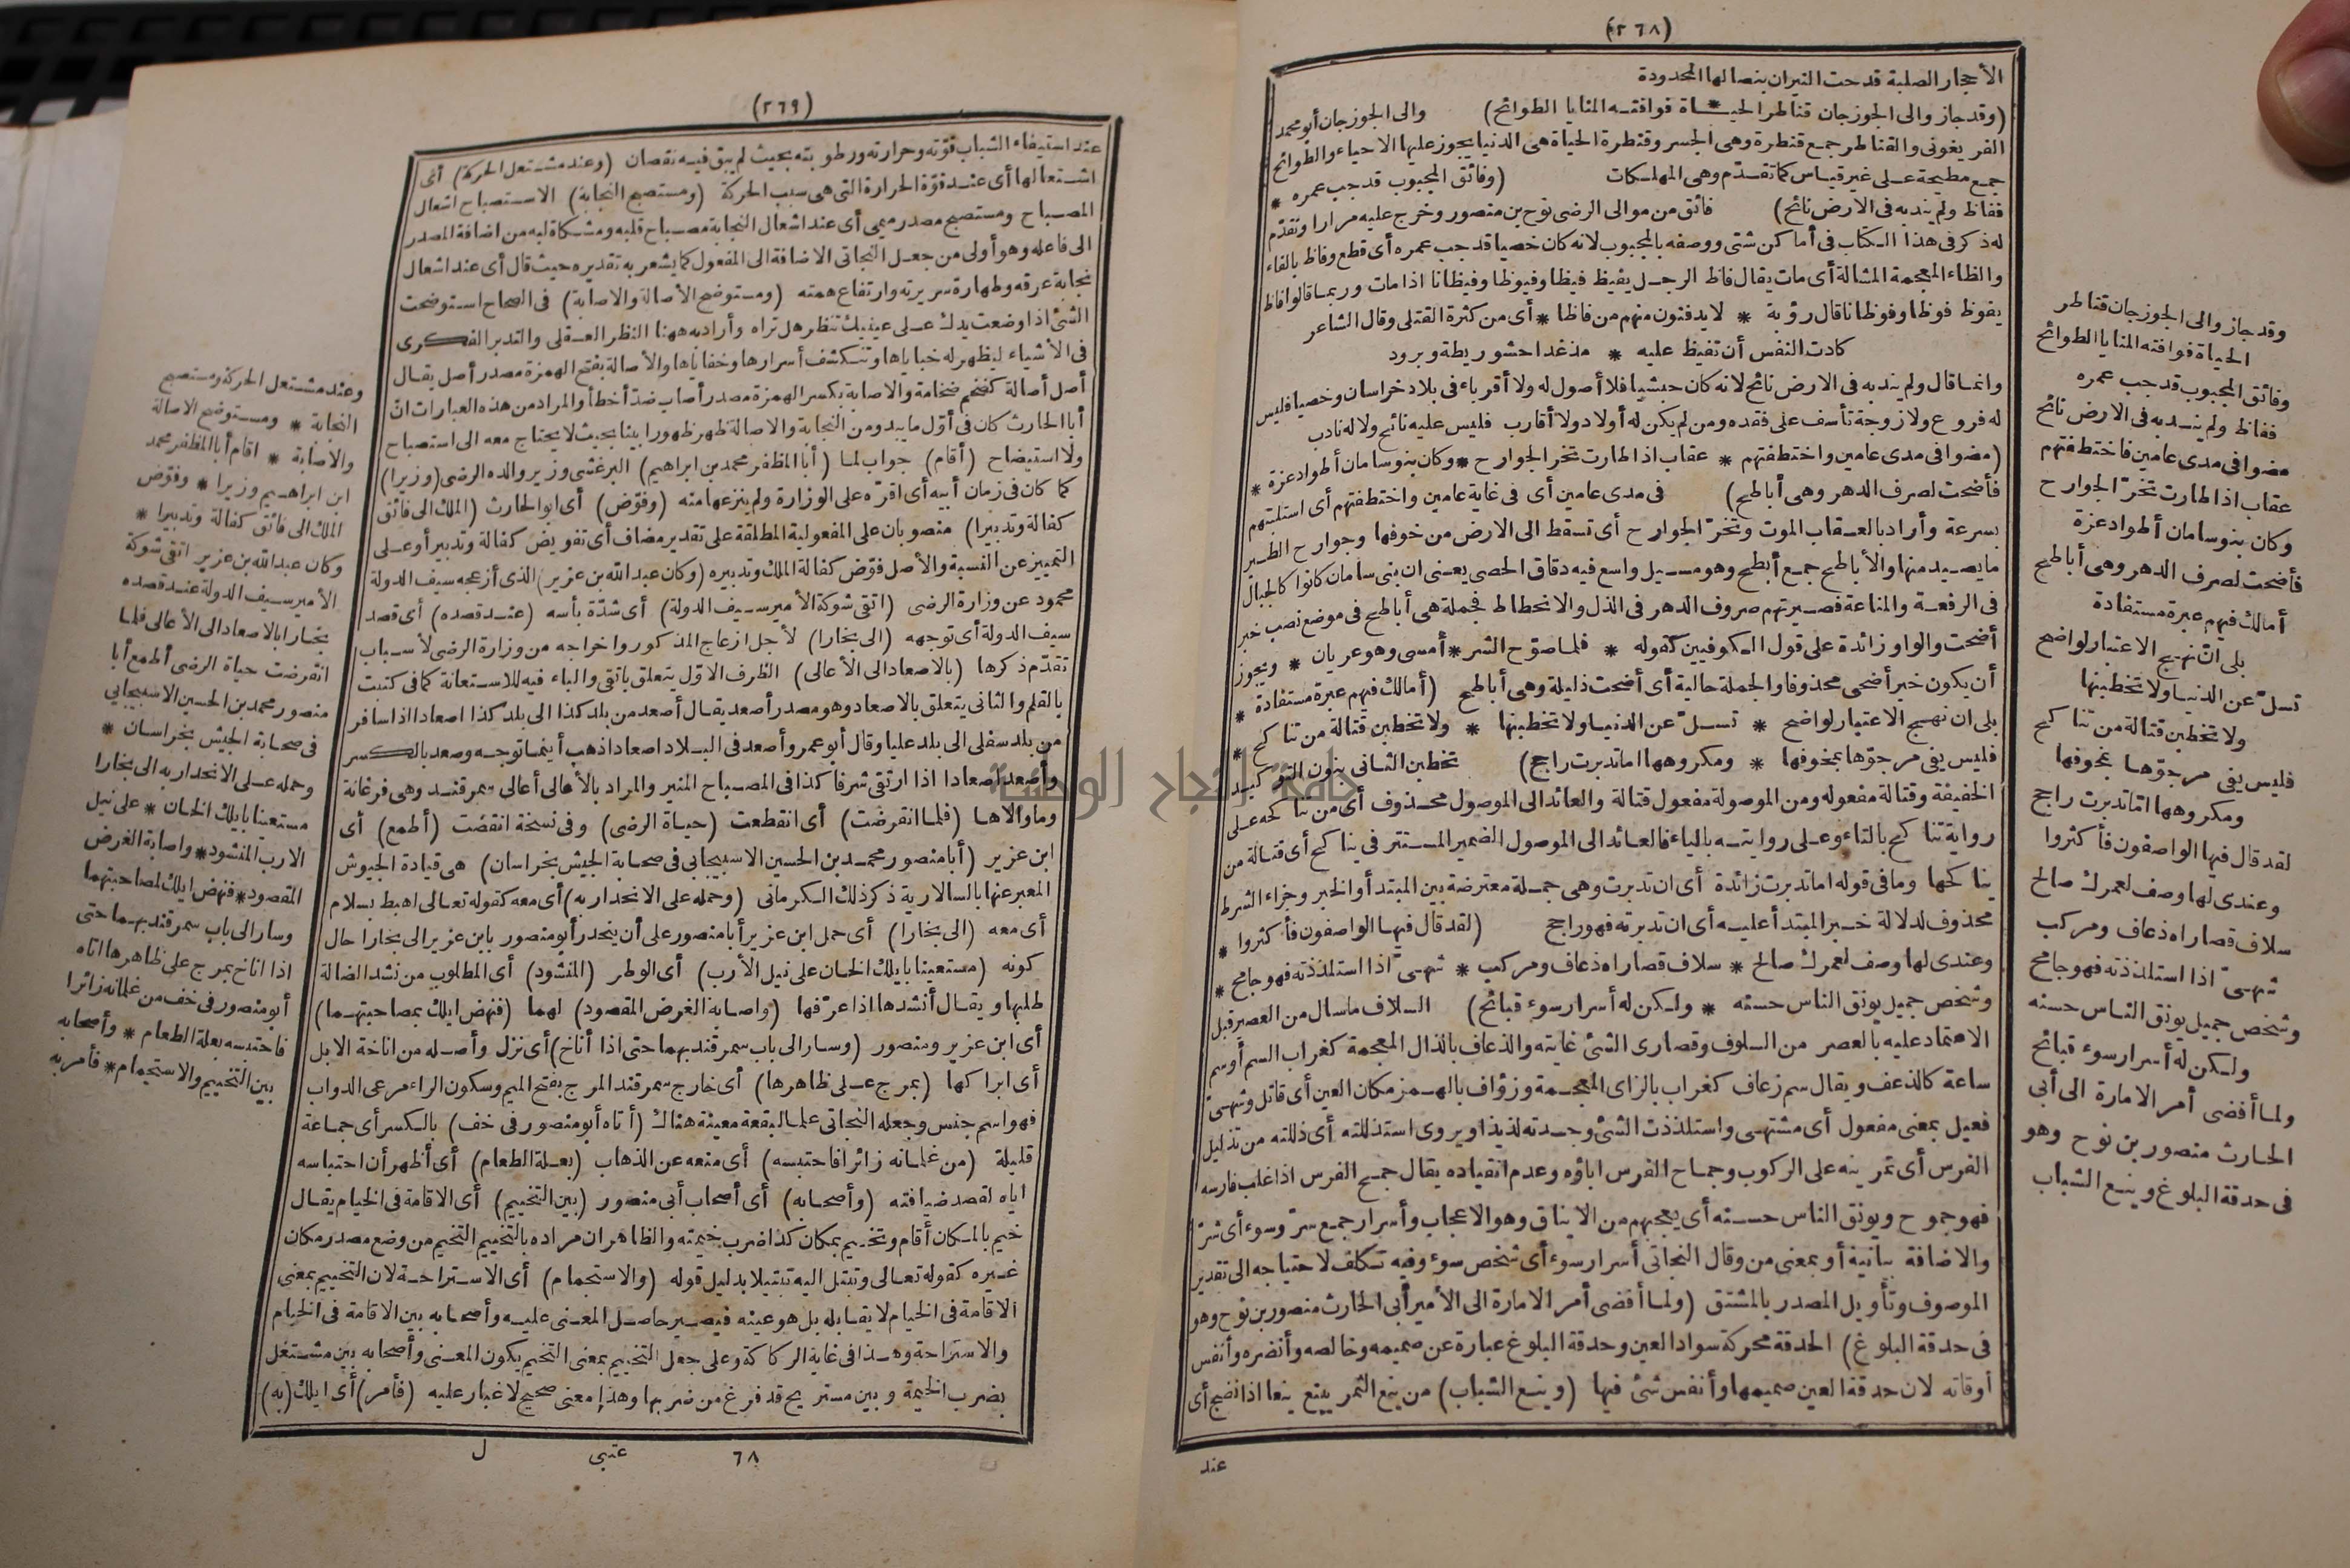 (٢٦٨)
الأحجار الصلبة قدحت النيران بنصالها المحدودة
(وقد جاز والى الجوزجان قناطر الحيــاة * فوافتــه المنايا الطوائح) والى الجوزجان أبو محمد
الفريغونى والقناطر جمع قنطرة وهى الجسر وقنطرة الحياة هى الدنيا يجوز عليها الاحياء والطوائح
جمع مطيحة على غير قياس كما تقدّم وهى المهلكات (وفائق المجبوب قد جب عمره *
ففاظ ولم يندبه فى الارض نائح) فائق من موالى الرضى نوح بن منصور وخرج عليه مرارا وتقدّم
له ذكر فى هذا الكتاب فى أماكن شتى ووصفه بالمجبوب لانه كان خصيا قد جب عمره أى قطع وفاظ بالفاء
والظاء المعجمة المشالة أى مات يقال فاظ الرجل يفيظ فيظا وفيوظا وفيظانا اذا مات وربما قالوا فاظ
يفوظ فوظا وفوظانا قال رؤبة * لا يدفنون منهم من فاظا * أى من كثرة القتلى وقال الشاعر
كادت النفس أن تفيظ عليه * مذ غدا حشو ريطة وبرود
وانما قال ولم يندبه فى الارض نائح لانه كان حبشيا فلا أصول له ولا أقرباء فى بلاد خراسان وخصيا فليس
له فروع ولا زوجة تأسف على فقده ومن لم يكن له أولاد ولا أقارب فليس عليه نائح ولا له نادب
(مضوا فى مدى عامين واختطفتهم * عقاب اذا طارت تخر الجوارح * وكان بنو سامان أطواد عزة *
فأضحت لصرف الدهر وهى أباطح) فى مدى عامين أى فى غاية عامين واختطفتهم أى استلبتهم
بسرعة وأراد بالعقاب الموت وتخرّ الجوارح أى تسقط الى الارض من خوفها وجوارح الطير
ما يصيد منها والأباطح جمع أبطح وهو مسيل واسع فيه دقاق الحصى يعنى ان بنى سامان كانوا كالجبال
فى الرفعة والمناعة فصيرتهم صروف الدهر فى الذل والانحطاط فجملة هى أباطح فى موضع نصب خبر
أضحت والواو زائدة على قول الكوفيين كقوله * فلما صوّح الشر * أمسى وهو عريان * ويجوز
أن يكون خبر أضحى محذوفا والجملة حالية أى أضحت ذليلة وهى أباطح (أمالك فيهم عبرة مستفادة *
بلى ان نهج الاعتبار لواضح * تسلّ عن الدنيا ولا تخطبنها * ولا تخطبن قتالة من تناكح *
فليس يفى مرجوّها بمخوفها * ومكروهها اما تدبرت راجح) تخطبن الثانى بنون التوكيد
الخفيفة وقتالة مفعوله ومن الموصولة مفعول قتالة والعائد الى الموصول محذوف أى من تناكحه على
رواية تناكح بالتاء وعلى روايته بالياء فالعائد الى الموصول الضمير المستتر فى يناكح أى قتالة من
يناكحها وما فى قوله اما تدبرت زائدة أى ان تدبرت وهى جملة معترضة بين المبتدأ والخبر وجزاء الشرط
محذوف لدلالة خبر المبتدأ عليه أى ان تدبرته فهو راجح (لقد قال فيها الواصفون فأكثروا *
وعندى لها وصف لعمرك صالح * سلاف قصاراه ذعاف ومركب * شهىّ اذا استلذذته فهو جامح *
وشخص جميل يونق الناس حسنه * ولكن له أسرار سوء قبائح) السلاف ما سال من العصير قبل
الاعتماد عليه بالعصر من السلوف وقصارى الشئ غايته والذعاف بالذال المعجمة كغراب السم أو سم
ساعة كالذعف ويقال سم زعاف كغراب بالزاى المعجمة وزؤاف بالهمز مكان العين أى قاتل وشهىّ
فعيل بمعنى مفعول أى مشتهى واستلذذت الشئ وجدته لذيذا ويروى استذللته أى ذللته من تذليل
الفرس أى تمرينه على الركوب وجماح الفرس اباؤه وعدم انقياده يقال جمح الفرس اذا غلب فارسه
فهو جموح ويونق الناس حسنه أى يعجبهم من الايناق وهو الاعجاب وأسرار جمع سرّ وسوء أى شرّ
والاضافة بيانية أو بمعنى من وقال النجاتى أسرار سوء أى شخص سوء وفيه تكلف لاحتياجه الى تقدير
الموصوف وتأويل المصدر بالمشتق (ولما أفضى أمر الامارة الى الأمير أبى الحارث منصور بن نوح وهو
فى حدقة البلوغ) الحدقة محركة سواد العين وحدقة البلوغ عبارة عن صميمه وخالصه وأنضره وأنفس
أوقاته لان حدقة العين صميمها وأنفس شئ فيها (وينع الشباب) من ينع الثمر يينع ينعا اذا نضج أى
عند
وقد جاز والى الجوزجان قناطر
الحياة فوافته المنايا الطوائح
وفائق المجبوب قد جب عمره
ففاظ ولم يندبه فى الارض نائح
مضوا فى مدى عامين فاختطفتهم
عقاب اذا طارت تخرّ الجوارح
وكان بنو سامان أطواد عزة
فأضحت لصرف الدهر وهى أباطح
أمالك فيهم عبرة مستفادة
بلى انّ نهج الاعتبار لواضح
تسلّ عن الدنيا ولا تخطبنها
ولا تخطبن قتالة من تناكح
فليس يفى مرجوّها بمخوفها
ومكروهها امّا تدبرت راجح
لقد قال فيها الواصفون فأكثروا
وعندى لها وصف لعمرك صالح
سلاف قصاراه ذعاف ومركب
شهىّ اذا استلذذته فهو جامح
وشخص جميل يونق الناس حسنه
ولكن له أسرار سوء قبائح
ولما أفضى أمر الامارة الى أبى
الحارث منصور بن نوح وهو
فى حدقة البلوغ وينع الشباب
(٢٦٩)
عند استيفاء الشباب قوّته وحرارته ورطوبته بحيث لم يبق فيه نقصان (وعند مشتعل الحركة) أى
اشتعالها أى عند قوّة الحرارة التى هى سبب الحركة (ومستصبح النجابة) الاستصباح اشعال
المصباح ومستصبح مصدر ميمى أى عند اشعال النجابة مصباح قلبه ومشكاة لبه من اضافة المصدر
الى فاعله وهو أولى من جعل النجاتى الاضافة الى المفعول كما يشعر به تقديره حيث قال أى عند اشعال
نجابة عرقه وطهارة سريرته وارتفاع همته (ومستوضح الأصالة والاصابة) فى الصحاح استوضحت
الشئ اذا وضعت يدك على عينيك تنظر هل تراه وأراد به ههنا النظر العقلى والتدبر الفكرى
فى الأشياء ليظهر له خباياها وتنكشف أسرارها وخفاياها والأصالة بفتح الهمزة مصدر أصل يقال
أصل أصالة كضخم ضخامة والاصابة بكسر الهمزة مصدر أصاب ضدّ أخطأ والمراد من هذه العبارات انّ
أبا الحارث كان فى أوّل ما يبدو من النجابة والاصالة ظهر ظهورا بينا بحيث لا يحتاج معه الى استصباح
ولا استيضاح (أقام) جواب لما (أبا المظفر محمد بن ابراهيم) البرغشى وزير والده الرضى (وزيرا)
كما كان فى زمان أبيه أى اقرّه على الوزارة ولم ينزعها منه (وفوّض) أى ابو الحارث (الملك الى فائق
كفالة وتدبيرا) منصوبان على المفعولية المطلقة على تقدير مضاف أى تفويض كفالة وتدبير أو على
التمييز عن النسبة والأصل فوّض كفالة الملك وتدبيره (وكان عبد الله بن عزير) الذى أزعجه سيف الدولة
محمود عن وزارة الرضى (اتقى شوكة الأمير سيف الدولة) أى شدّة بأسه (عند قصده) أى قصد
سيف الدولة أى توجهه (الى بخارا) لأجل ازعاج المذكور واخراجه من وزارة الرضى لأسباب
تقدّم ذكرها (بالاصعاد الى الأعالى) الظرف الاوّل يتعلق باتقى والباء فيه للاستعانة كما فى كتبت
بالقلم والثانى يتعلق بالاصعاد وهو مصدر أصعد يقال أصعد من بلد كذا الى بلد كذا اصعادا اذا سافر
من بلد سفلى الى بلد عليا وقال أبو عمرو أصعد فى البلاد اصعادا ذهب أينما توجه وصعد بالكسر
وأصعد اصعادا اذا ارتقى شرفا كذا فى المصباح المنير والمراد بالأعالى أعالى سمرقند وهى فرغانة
وما والاها (فلما انقرضت) أى انقطعت (حياة الرضى) وفى نسخة انقضت (أطمع) أى
ابن عزير (أبا منصور محمد بن الحسين الاسبيجابى فى صحابة الجيش بخراسان) هى قيادة الجيوش
المعبر عنها بالسالارية ذكر ذلك الكرمانى (وحمله على الانحدار به) أى معه كقوله تعالى اهبط بسلام
أى معه (الى بخارا) أى حمل ابن عزير أبا منصور على أن ينحدر أبو منصور بابن عزير الى بخارا حال
كونه (مستعينا بايلك الخان على نيل الأرب) أى الوطر (المنشود) أى المطلوب من نشد الضالة
طلبها ويقال أنشدها اذا عرّفها (واصابة الغرض المقصود) لهما (فنهض ايلك بمصاحبتهما)
أى ابن عزير ومنصور (وسار الى باب سمرقند بهما حتى اذا أناخ) أى نزل وأصله من اناخة الابل
أى ابراكها (بمرج على ظاهرها) أى خارج سمرقند المرج بفتح الميم وسكون الراء مرعى الدواب
فهو اسم جنس وجعله النجاتى علما لبقعة معينة هناك (أتاه أبو منصور فى خف) بالكسر أى جماعة
قليلة (من غلمانه زائرا فاحتبسه) أى منعه عن الذهاب (بعلة الطعام) أى أظهر أن احتباسه
اياه لقصد ضيافته (وأصحابه) أى أصحاب أبى منصور (بين التخييم) أى الاقامة فى الخيام يقال
خيم بالمكان أقام وتخيم بمكان كذا ضرب خيمته والظاهر ان مراده بالتخييم التخيم من وضع مصدر مكان
غيره كقوله تعالى وتبتل اليه تبتيلا بدليل قوله (والاستجمام) أى الاستراحة لان التخييم بمعنى
الاقامة فى الخيام لا يقابله بل هو عينه فيصير حاصل المعنى عليه وأصحابه بين الاقامة فى الخيام
والاستراحة وهذا فى غاية الركاكة وعلى جعل التخييم بمعنى التخيم يكون المعنى وأصحابه بين مشتغل
بضرب الخيمة وبين مستريح قد فرغ من ضربها وهذا معنى صحيح لا غبار عليه (فأمر) أى ايلك (به)
٦٨ عتبى ل
وعند مشتعل الحركة ومستصبح
النجابة * ومستوضح الاصالة
والاصابة * اقام أبا المظفر محمد
ابن ابراهيم وزيرا * وفوّض
الملك الى فائق كفالة وتدبيرا *
وكان عبد الله بن عزير اتقى شوكة
الأمير سيف الدولة عند قصده
بخارا بالاصعاد الى الأعالى فلما
انقرضت حياة الرضى أطمع أبا
منصور محمد بن الحسين الاسبيجابى
فى صحابة الجيش بخراسان *
وحمله على الانحدار به الى بخارا
مستعينا بايلك الخان * على نيل
الارب المنشود * واصابة الغرض
المقصود * فنهض ايلك لمصاحبتهما
وسار الى باب سمرقند بهما حتى
اذا اناخ بمرج على ظاهرها اتاه
أبو منصور فى خف من غلمانه زائرا
فاحتبسه بعلة الطعام * وأصحابه
بين التخييم والاستجمام * فأمر به
جامعة النجاح الوطنية